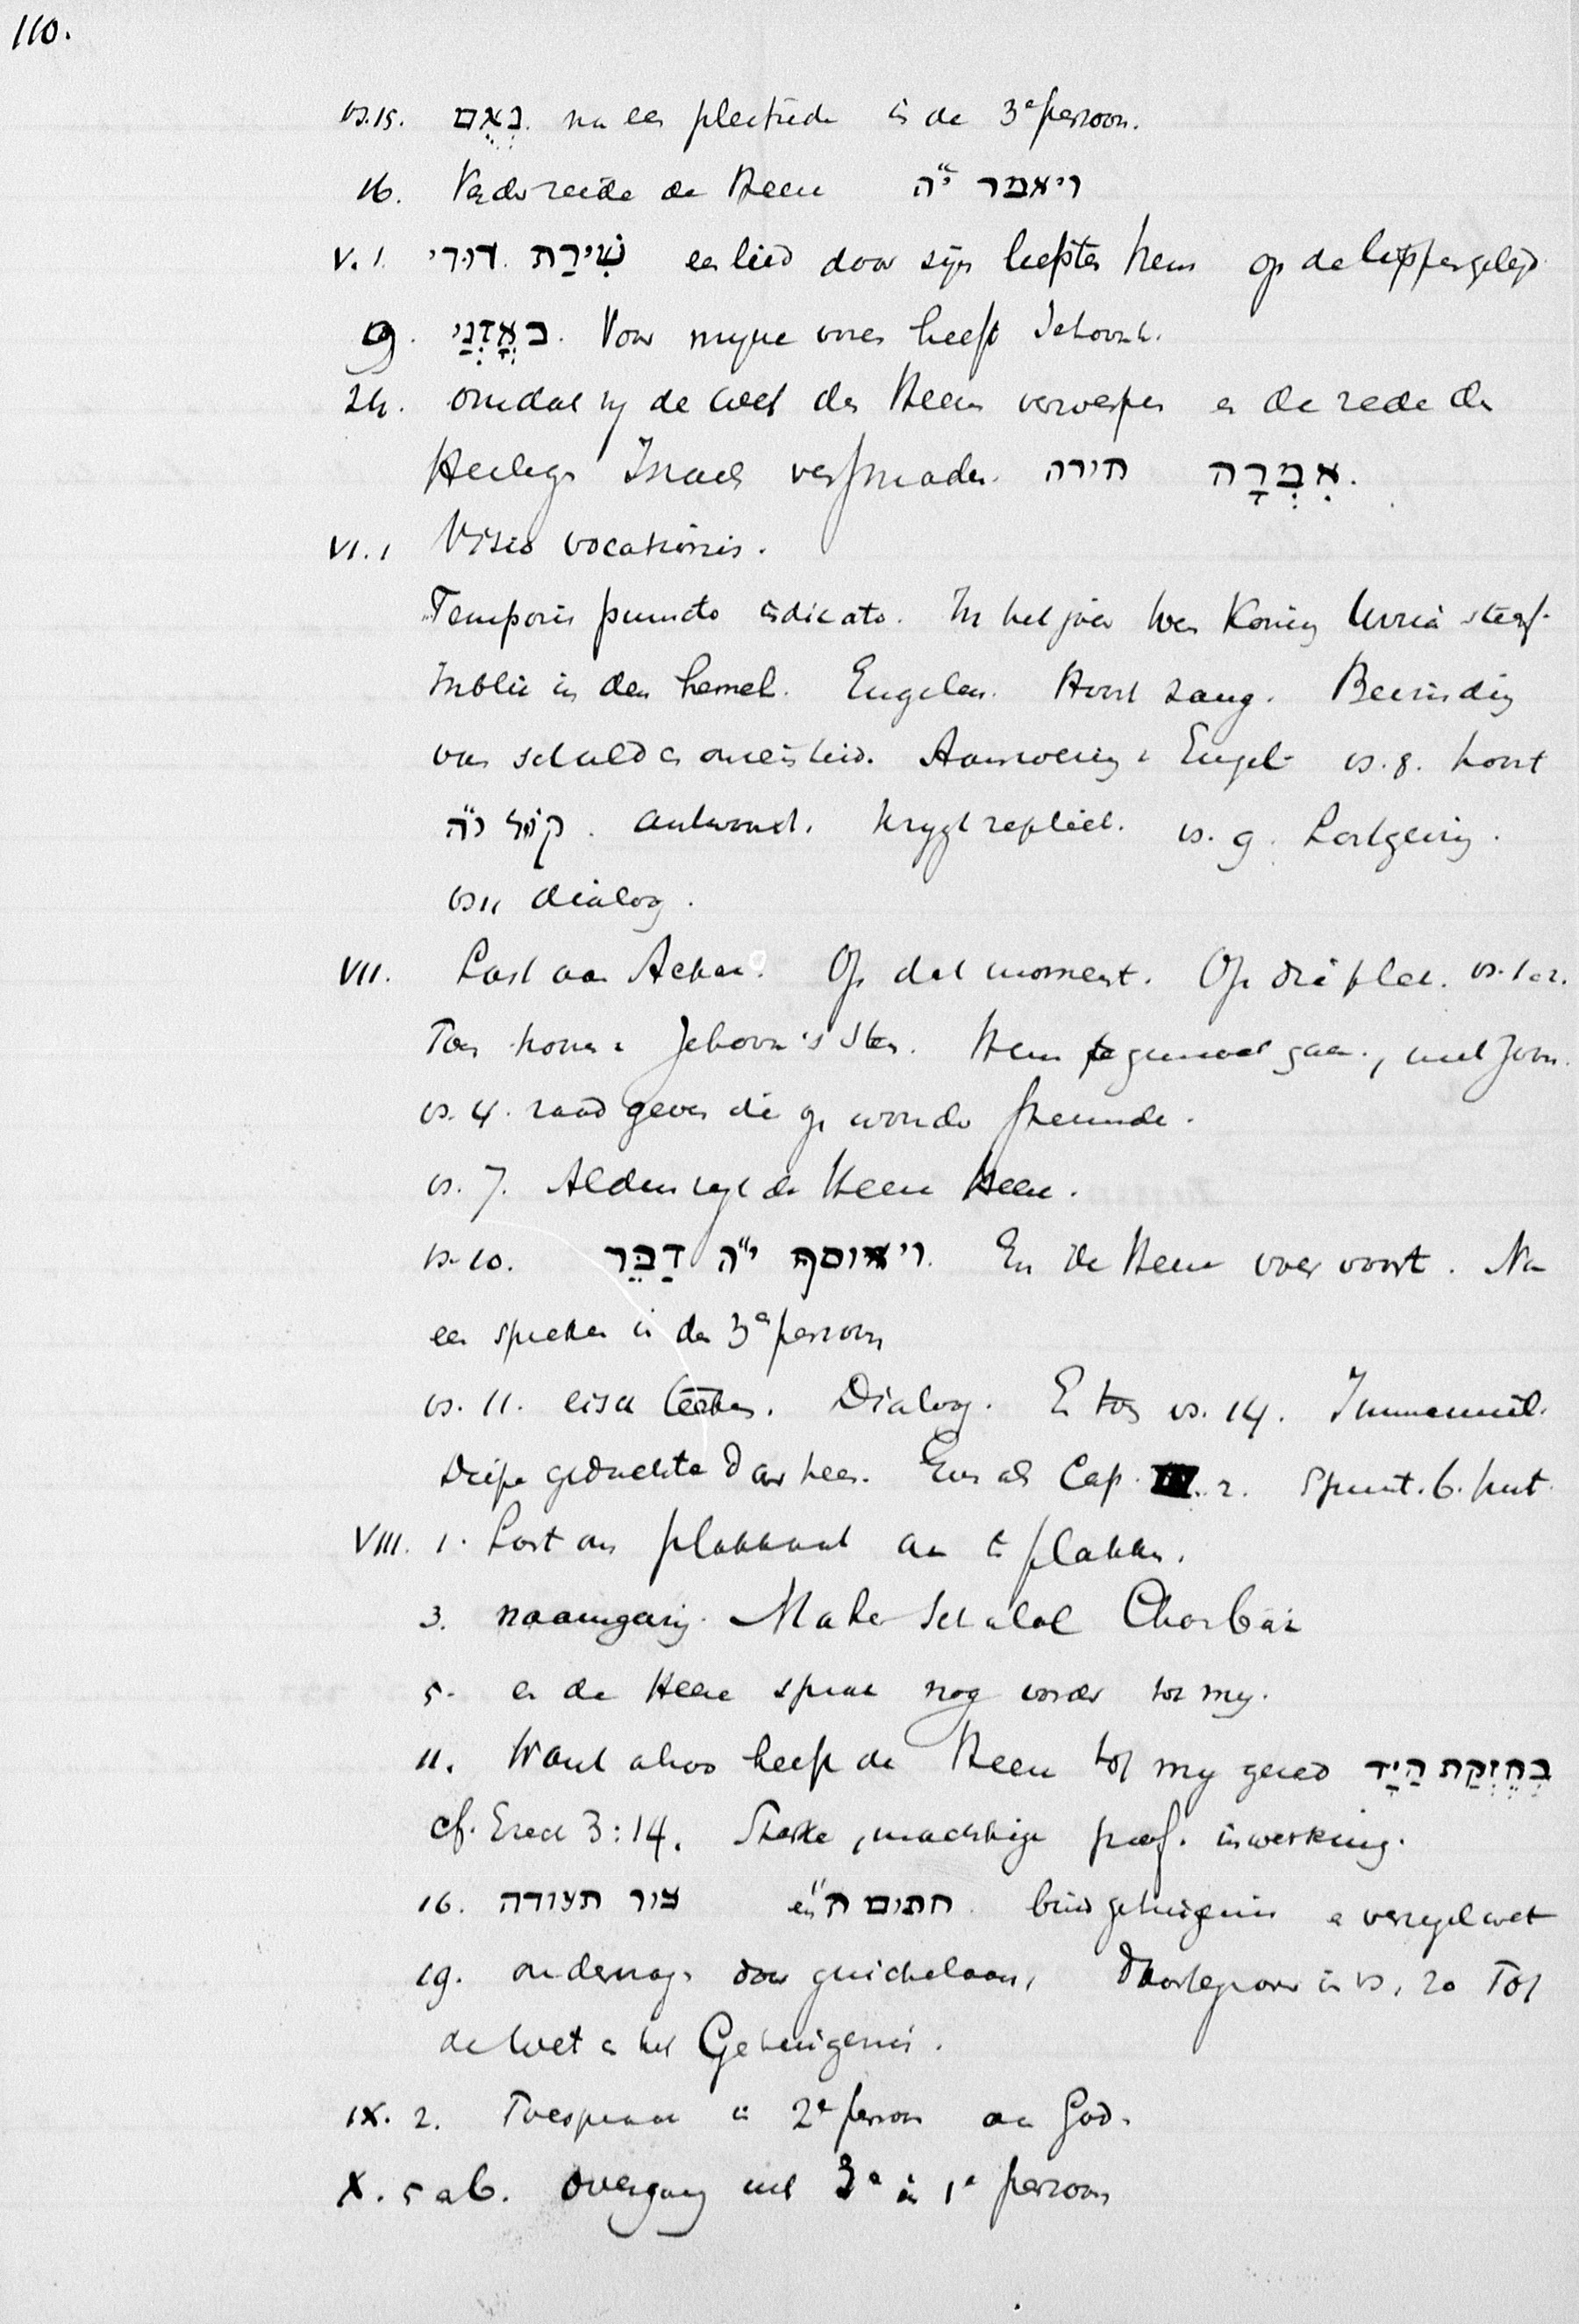 110.
vs. 15. נְאֻם. na een pleitrede in de 3e persoon.
16. Verder zeide de Heere ויאמר י״ה
V. 1. שִׁירַת דּוֹדִי. een lied door zijn liefste hem op de lippen gelegd
9. בְּאָזְנָי. Voor mijne ooren heeft Jehovah.
24. omdat zij de wet des Heeren verwerpen en de rede des
Heiligen Israels versmaden. תורה אִמְרָה.
VI. 1 Visio vocationis.
Temporis puncto indicato. In het jaar toen Koning Uzzia stierf.
Inblik in den hemel. Engelen. Hoort zang. Bevinding
van schuld en onreinheid. Aanroering v Engel vs. 8. hoort
קול י״ה. antwoord. Krygt repliek. vs. 9. Lastgeving.
vs 11 dialog.
VII. Last aan Achaz. Op dat moment. Op die plek. vs. 1 en 2.
Toen komt Jehova's stem. Hem tegemoet gaan, met zoon.
vs. 4. raad geven die gegeven worden
vs. 7. Alzoo zegt de Heere Heere.
vs. 10. ויוסף י״ה דַבֵּר. En de Heere voer voort. Na
een spreken in den 3e persoon
vs. 11. eisch teeken. Dialog. En toen vs. 14. Immanuel.
Diepe gedachte daar heen. Even als Cap. 2.
VIII. 1. Last om plakkaat aan te plakken.
3. naamgeving. Maher Schalal Chasbaz
5. en de Heere sprak nog verder tot my.
11. Want alzoo heeft de Heere tot my gezeid בְּחֶזְקַת הַיָּד
cf. Ezech 3:14. Sterke, machtige prof. inwerking.
16. צור תעודה חתום ת״ en bind getuigenis en verzegel wet
19. ondervragen door guichelaars, Daartegenover in vs. 20 Tot
de Wet en het Getuigenis.
IX. 2. Toespraak in 2e persoon aan God.
X. 5 a 6. overgang uit 3e in 1e persoon